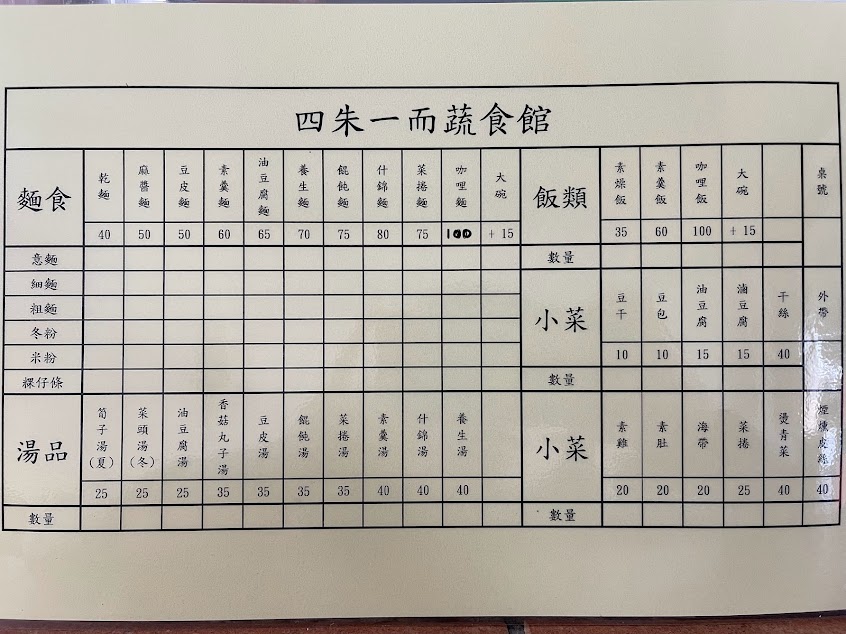 四朱一而蔬食館
麵食 乾麵 麻醬麵 豆皮麵 素羹麵 油豆腐麵 養生麵 餛飩麵 什錦麵 菜捲麵 咖哩麵 大碗 飯類 素燥飯 素羹飯 咖哩飯 大碗 桌號
40 50 50 60 65 70 75 80 75 100 +15 35 60 100 +15
意麵 數量
細麵
粗麵
冬粉
米粉
粿仔條
小菜 豆干 豆包 油豆腐 滷豆腐 干絲 外帶
10 10 15 15 40
數量
湯品 筍子湯(夏) 菜頭湯(冬) 油豆腐湯 香菇丸子湯 豆皮湯 餛飩湯 菜捲湯 素羹湯 什錦湯 養生湯 小菜 素雞 素肚 海帶 菜捲 燙青菜 煙燻皮絲
25 25 25 35 35 35 35 40 40 40 20 20 20 25 40 40
數量 數量